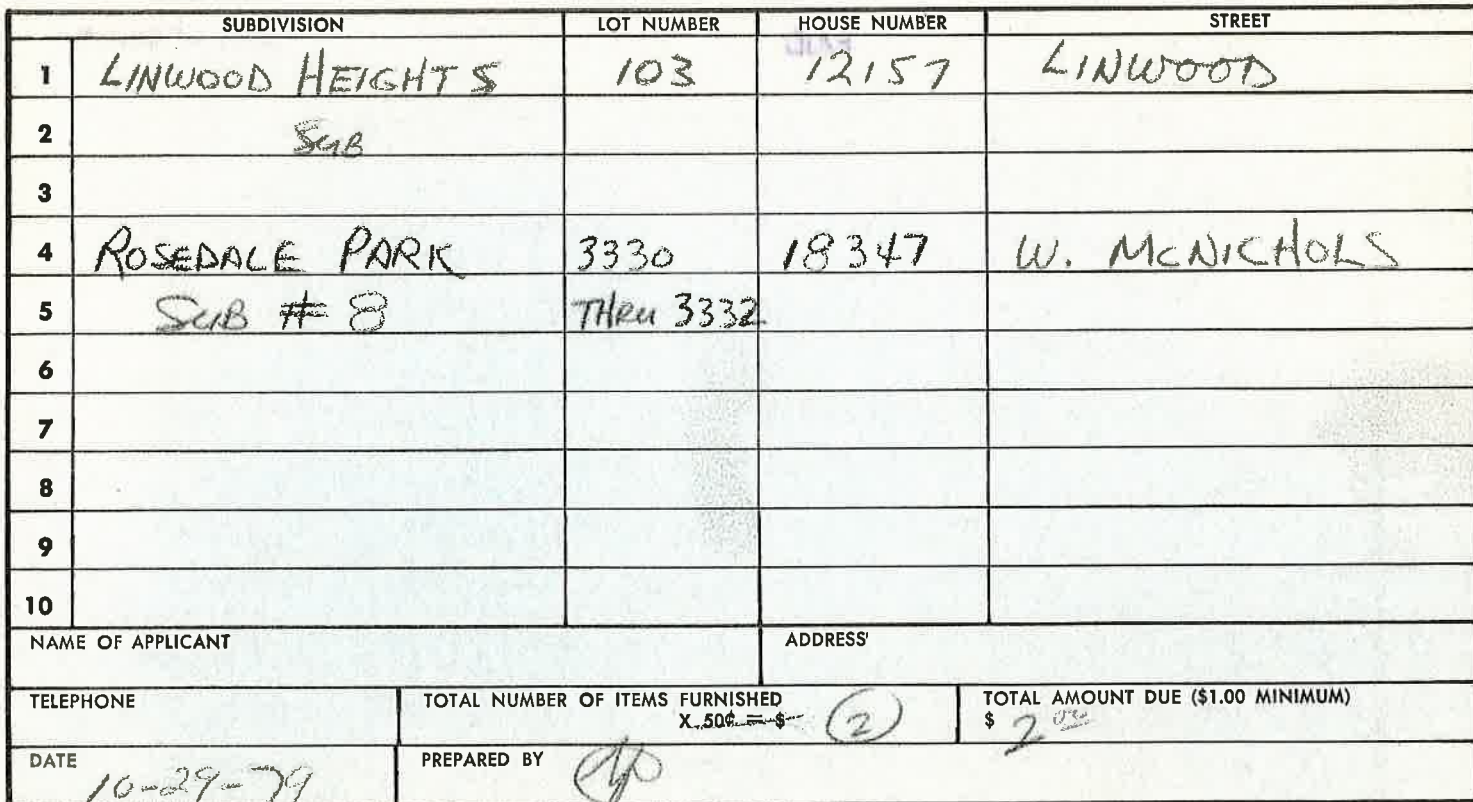 SUBDIVISION LOT NUMBER HOUSE NUMBER STREET
1 LINWOOD HEIGHTS 103 12157 LINWOOD
2 SUB
3
4 ROSEDALE PARK 3330 18347 W. McNICHOLS
5 SUB # 8 THRU 3332
6
7
8
9
10
NAME OF APPLICANT ADDRESS
TELEPHONE TOTAL NUMBER OF ITEMS FURNISHED TOTAL AMOUNT DUE ($1.00 MINIMUM)
X .50¢ = $ 2 $ 2 00
DATE PREPARED BY
10-29-79